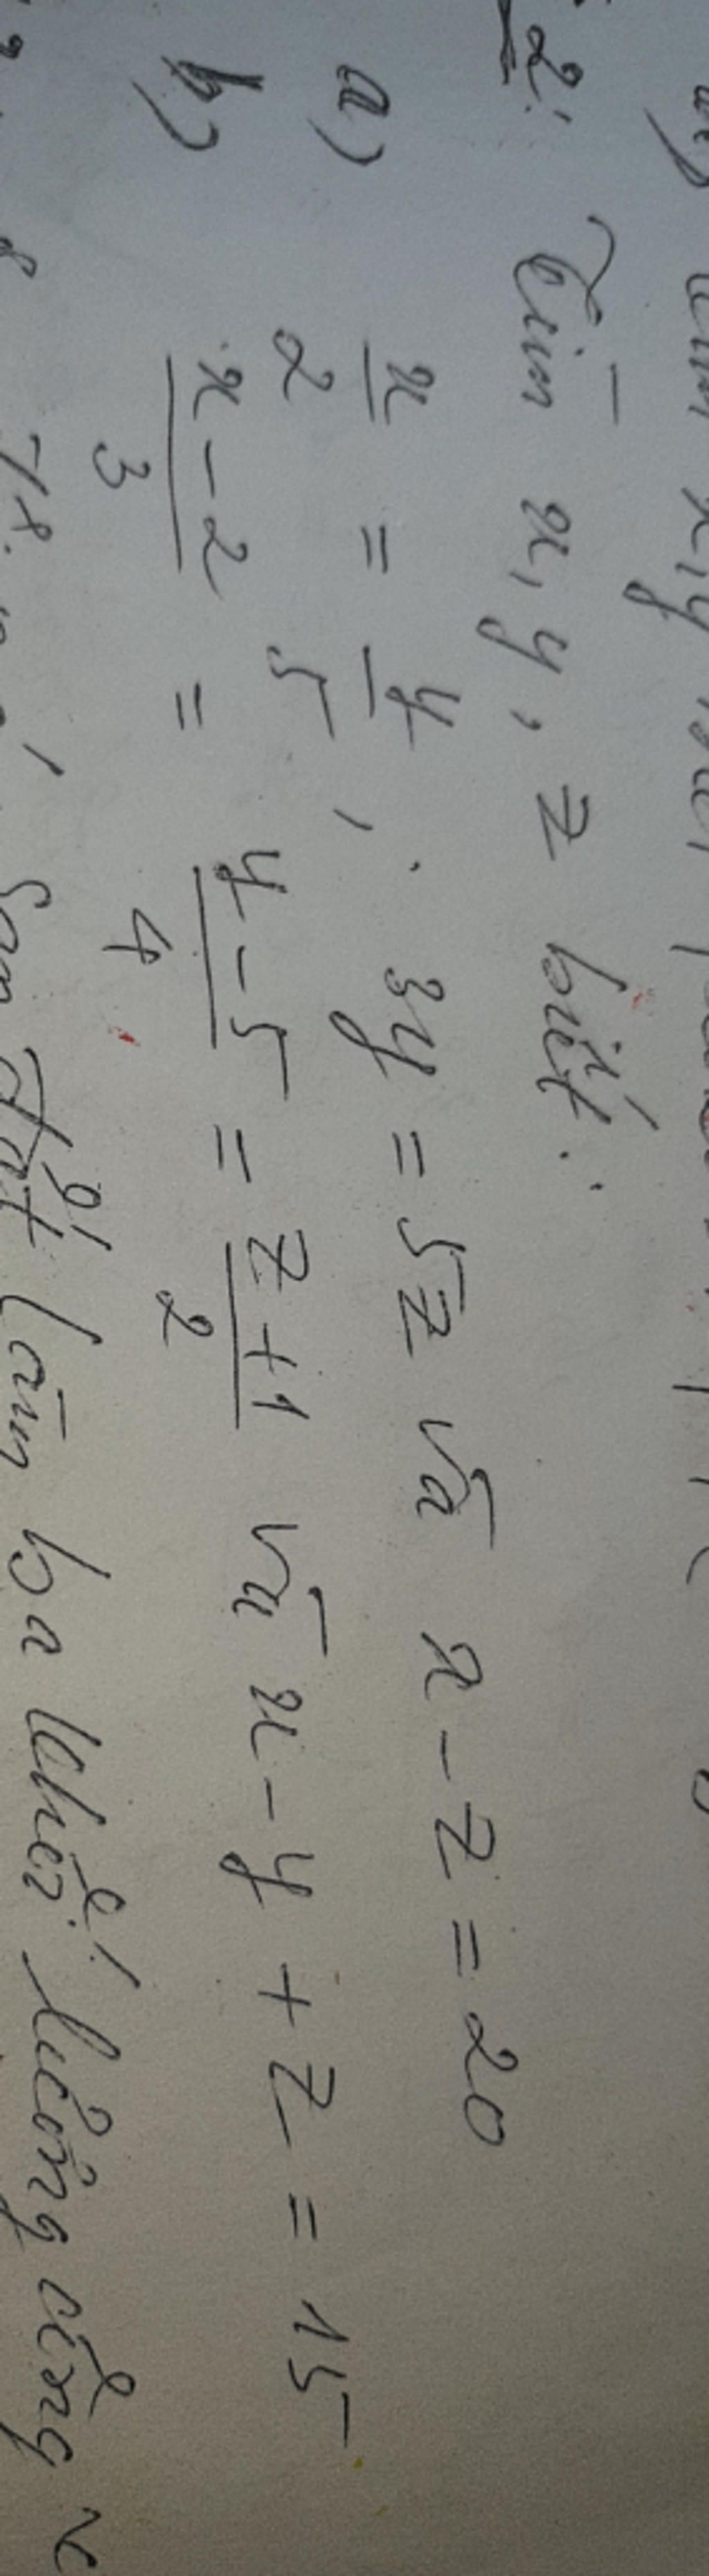 2: Tìm x, y, z biết:
a) x/2 = y/5 ; 3y = 5z và x - z = 20
b) x - 2/3 = y - 5/4 = z + 1/2 và x - y + z = 15
làm ba khối lượng